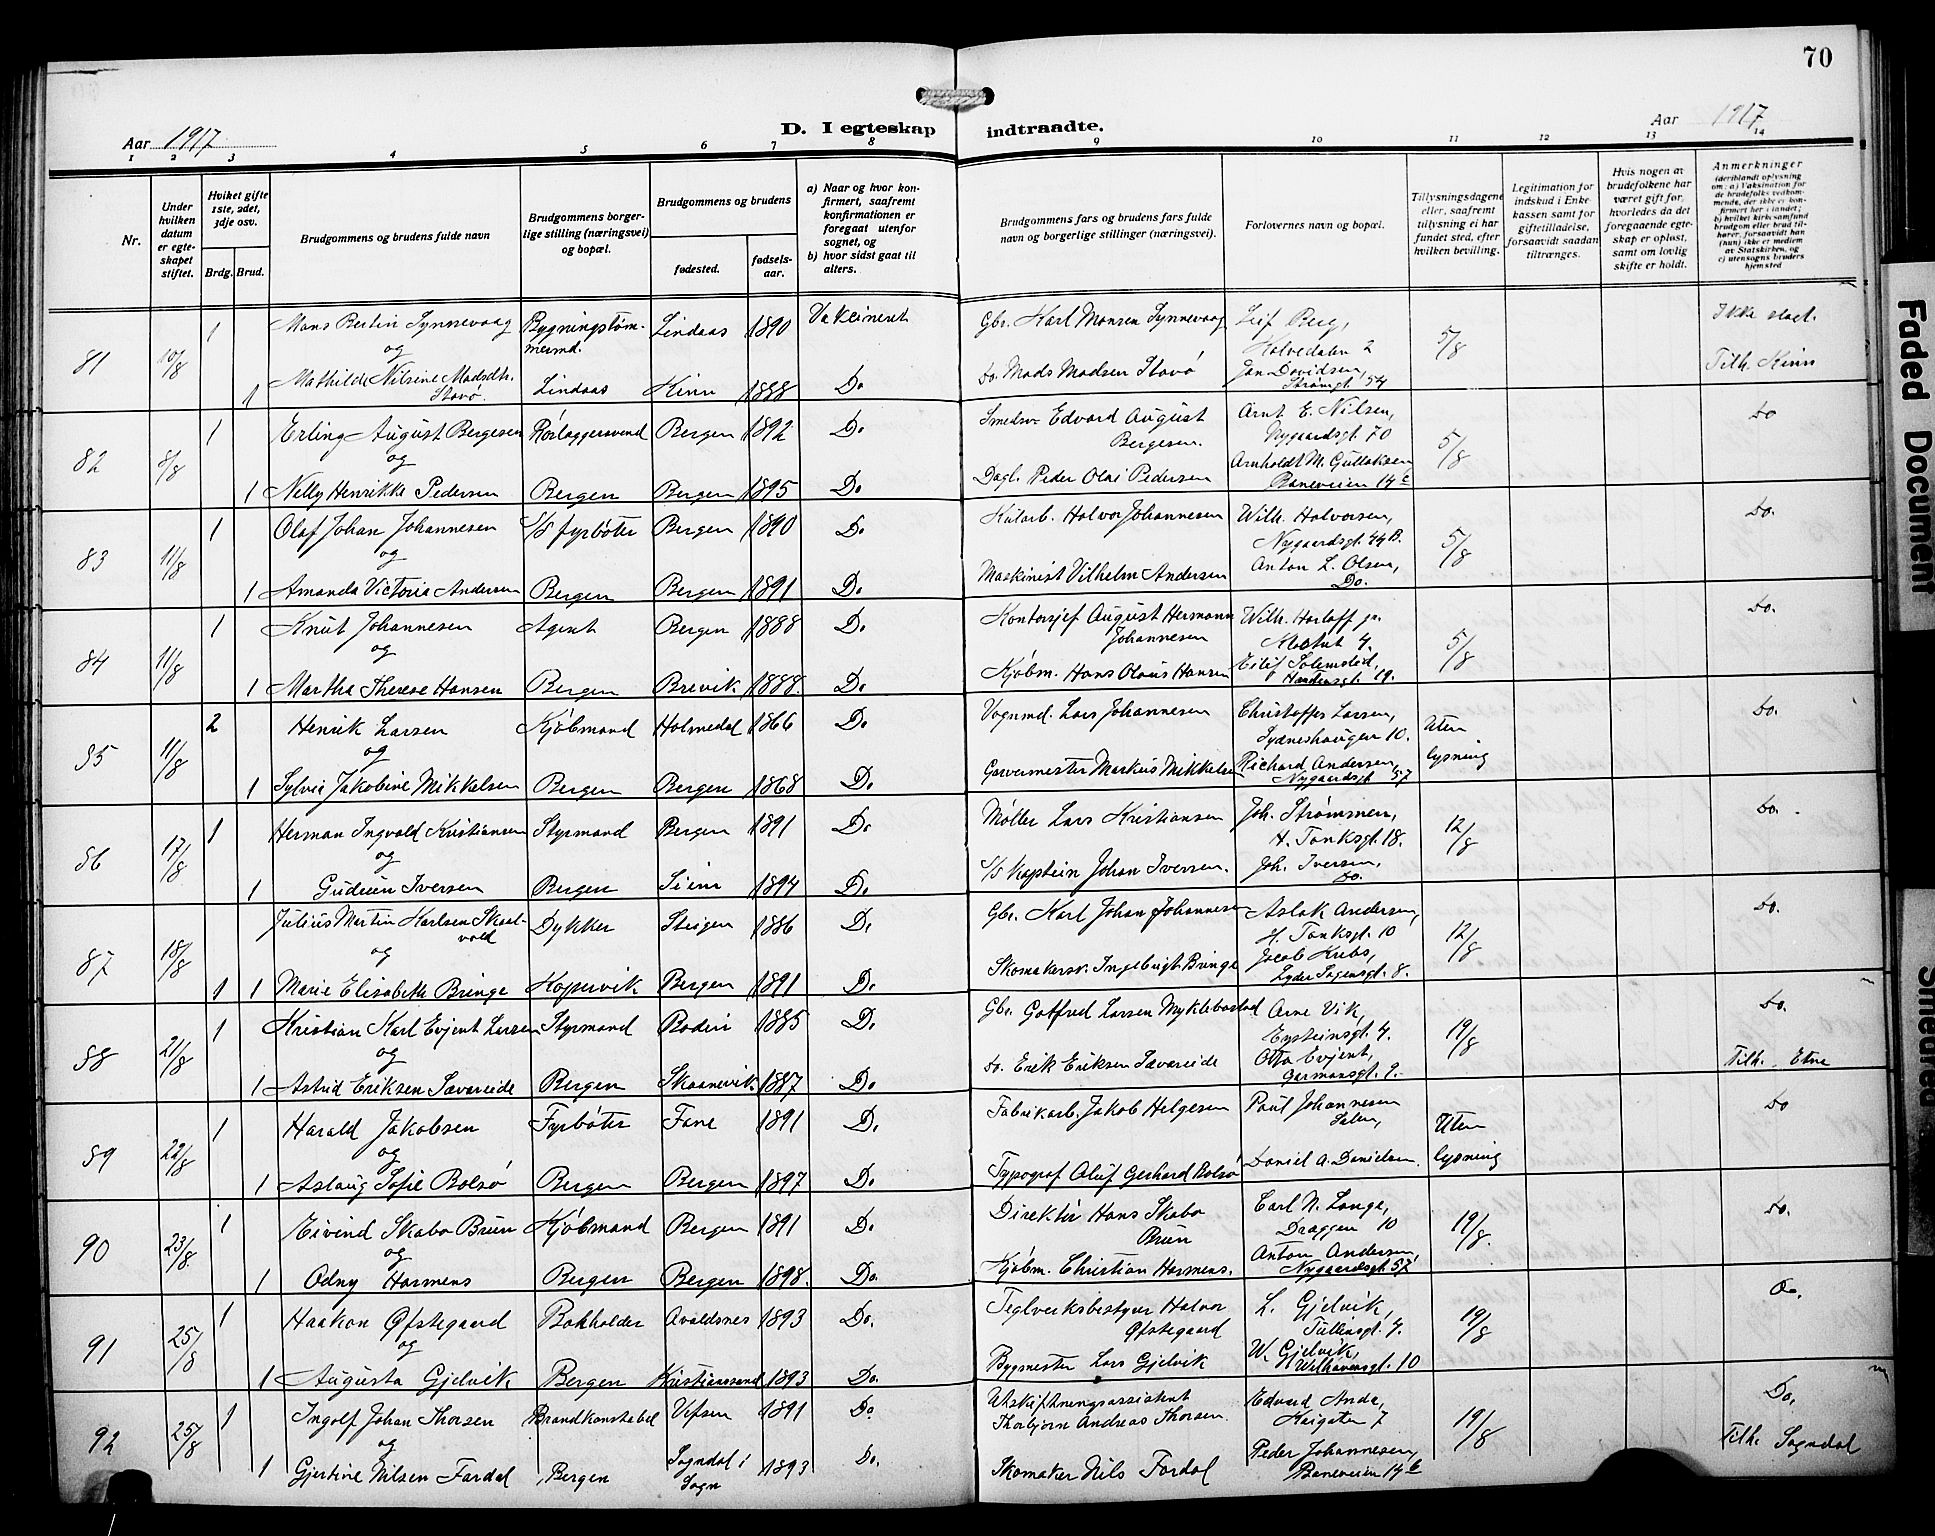 70
Aar 1917
D. I egteskap indtraadte.
Aar 1917
1 2 3 4 5 6 7 8 9 10 11 12 13 14
Nr.
Under hvilken datum er egteskapet stiftet.
Hviket gifte 1ste, 2det, 3dje osv.
Brdg. Brud.
Brudgommens og brudens fulde navn
Brudgommens borgerlige stilling (næringsvei) og bopæl.
Brudgommens og brudens
fødested.
fødselsaar.
a) Naar og hvor konfirmert, saafremt konfirmationen er foregaat utenfor sognet, og
b) hvor sidst gaat til alters.
Brudgommens fars og brudens fars fulde navn og borgerlige stillinger (næringsvei).
Forlovernes navn og bopæl.
Tillysningsdagene eller, saafremt tillysning ei har fundet sted, efter hvilken bevilling.
Legitimation for indskud i Enkekassen samt for giftetilladelse, forsaavidt saadan tiltrænges.
Hvis nogen av brudefolkene har været gift før, hvorledes da det foregaaende egteskap er opløst, samt om lovlig skifte er holdt.
Anmerkninger (deriblandt oplysning om: a) Vaksination for de brudefolks vedkommende, der ikke er konfirmert her i landet; b) hvilket kirkesamfund brudgom eller brud tilhører, forsaavidt han (hun) ikke er medlem av Statskirken, og c) utensogns bruders hjemsted
81 10/8 1 Mons Bertin Synnevaag Bygningstømmermd. Lindaas 1890 Vakcineret Gbr. Karl Monsen Synnevaag Leif Berg, 5/8 Ikke slegt.
og
1 Mathilde Nilsine Madsdtr. Stavø. Lindaas Kinn 1888 Do Do. Mads Madsen Stavø Jan Davidsen, Strømgt 54 Tilh. Kinn
82 8/8 1 Erling August Bergesen Rørlæggersvend Bergen 1892 Do Smedsv. Edvard August Bergesen. Arnt E. Nilsen, Nygaardsgt. 70 5/8 Do
og
1 Nelly Henrikke Pedersen Bergen Bergen 1895 Do Dagl. Peder Olai Pedersen Arnholdt M. Gullaksen, Baneveien 14c
83 11/8 1 Olaf Johan Johannesen S/S fyrbøter Bergen 1890 Do Kularb. Halvor Johannesen Wilh. Halvorsen, Nygaardsgt. 44 B. 5/8 Do.
og
1 Amanda Victoria Andersen Bergen Bergen 1891 Do Maskinist Vilhelm Andersen Anton L. Olsen, Do.
84 11/8 1 Knut Johannesen Agent Bergen 1888 Do Kontorsjef August Hermann Johannesen Wilh. Harloff jr. 5/8 Do.
og
1 Martha Therese Hansen Bergen Brevik 1888. Do Kjøbm. Hans Olaus Hansen
85 11/8 2 Henrik Larsen Kjøbmand Holmedal 1866 Do Vognmd. Lars Johannesen Christoffer Larsen, Sydneshaugen 10. Uten lysning Do.
og
1 Sylvia Jakobine Mikkelsen Bergen Bergen 1868 Do Garvermester Markus Mikkelsen Richard Andersen, Nygaardsgt 57
86 17/8 1 Herman Ingvald Kristiansen Styrmand Bergen 1891 Do Møller Lars Kristiansen Joh. Strømmen, H. Tanksgt. 18. 12/8 Do.
og
1 Gudrun Iversen Bergen Seim 1894 Do S/S Kaptein Johan Iversen. Joh. Iversen, Do.
87 18/8 1 Julius Martin Karlsen Skaalvold Dykker Steigen 1886 Do Gbr. Karl Johan Johannesen Aslak Andersen, H. Tanksgt. 10 12/8 Do.
og
1 1 Marie Elisabeth Bringe Kopervik Bergen 1891 Do Skomakersv. Ingebrigt Bringe Jacob Kubs, Lyder Sagensgt. 8.
88 21/8 1 Kristian Karl Evjent Larsen Styrmand Bodin 1885 Do Gbr. Gotfred Larsen Myklebostad Arne Vik, Eysteinsgt. 4. 19/8 Do.
og
1 Astrid Eriksen Savareide Bergen Skaanevik 1887 Do Do. Erik Eriksen Savareide Otto Evjent, Garmansgt. 9. Tilh. Etne
89 22/8 1 Harald Jakobsen Fyrbøter Fane 1891 Do Fabrikarb. Jakob Helgesen Paul Johannesen Uten lysning Do
og
1 Aslaug Sofie Bolsø Bergen Bergen 1897 Do Typograf Oluf Gerhard Bolsø Daniel A. Danielsen.
90 23/8 1 Eivind Skabo Brun Kjøbmand Bergen 1891 Do Direktør Hans Skabo Brun Carl N. Lange, Dræggen 10 19/8 Do.
og
1 Odny Harmens Bergen Bergen 1898. Do. Kjøbm. Christian Harmens. Anton Andersen, Nygaardsgt. 57
91 25/8 1 Haakon Øfstegaard Bokholder Avaldsnes 1893 Do. Teglverksbestyrer Halvor Øfstegaard L. Gjelvik, Tullinsgt. 4. 19/8 Do.
og
1 Augusta Gjelvik Bergen Kristianssand 1893 Do. Bygmester Lars Gjelvik W. Gjelvik, Welhavensgt. 10
92 25/8 1 Ingolf Johan Thorsen Brandkonstabel Vefsen 1891 Do Utskiftningsassistent Thorbjørn Andreas Thorsen. Edvard Anda, Kaigaten 7 19/8 Do.
og
1 Gjertine Nilsen Fardal Bergen Sogndal i Sogn 1893 Do. Skomaker Nils Fardal Peder Johannesen, Baneveien 14 b Tilh. Sogndal
Faded Document
Smeared